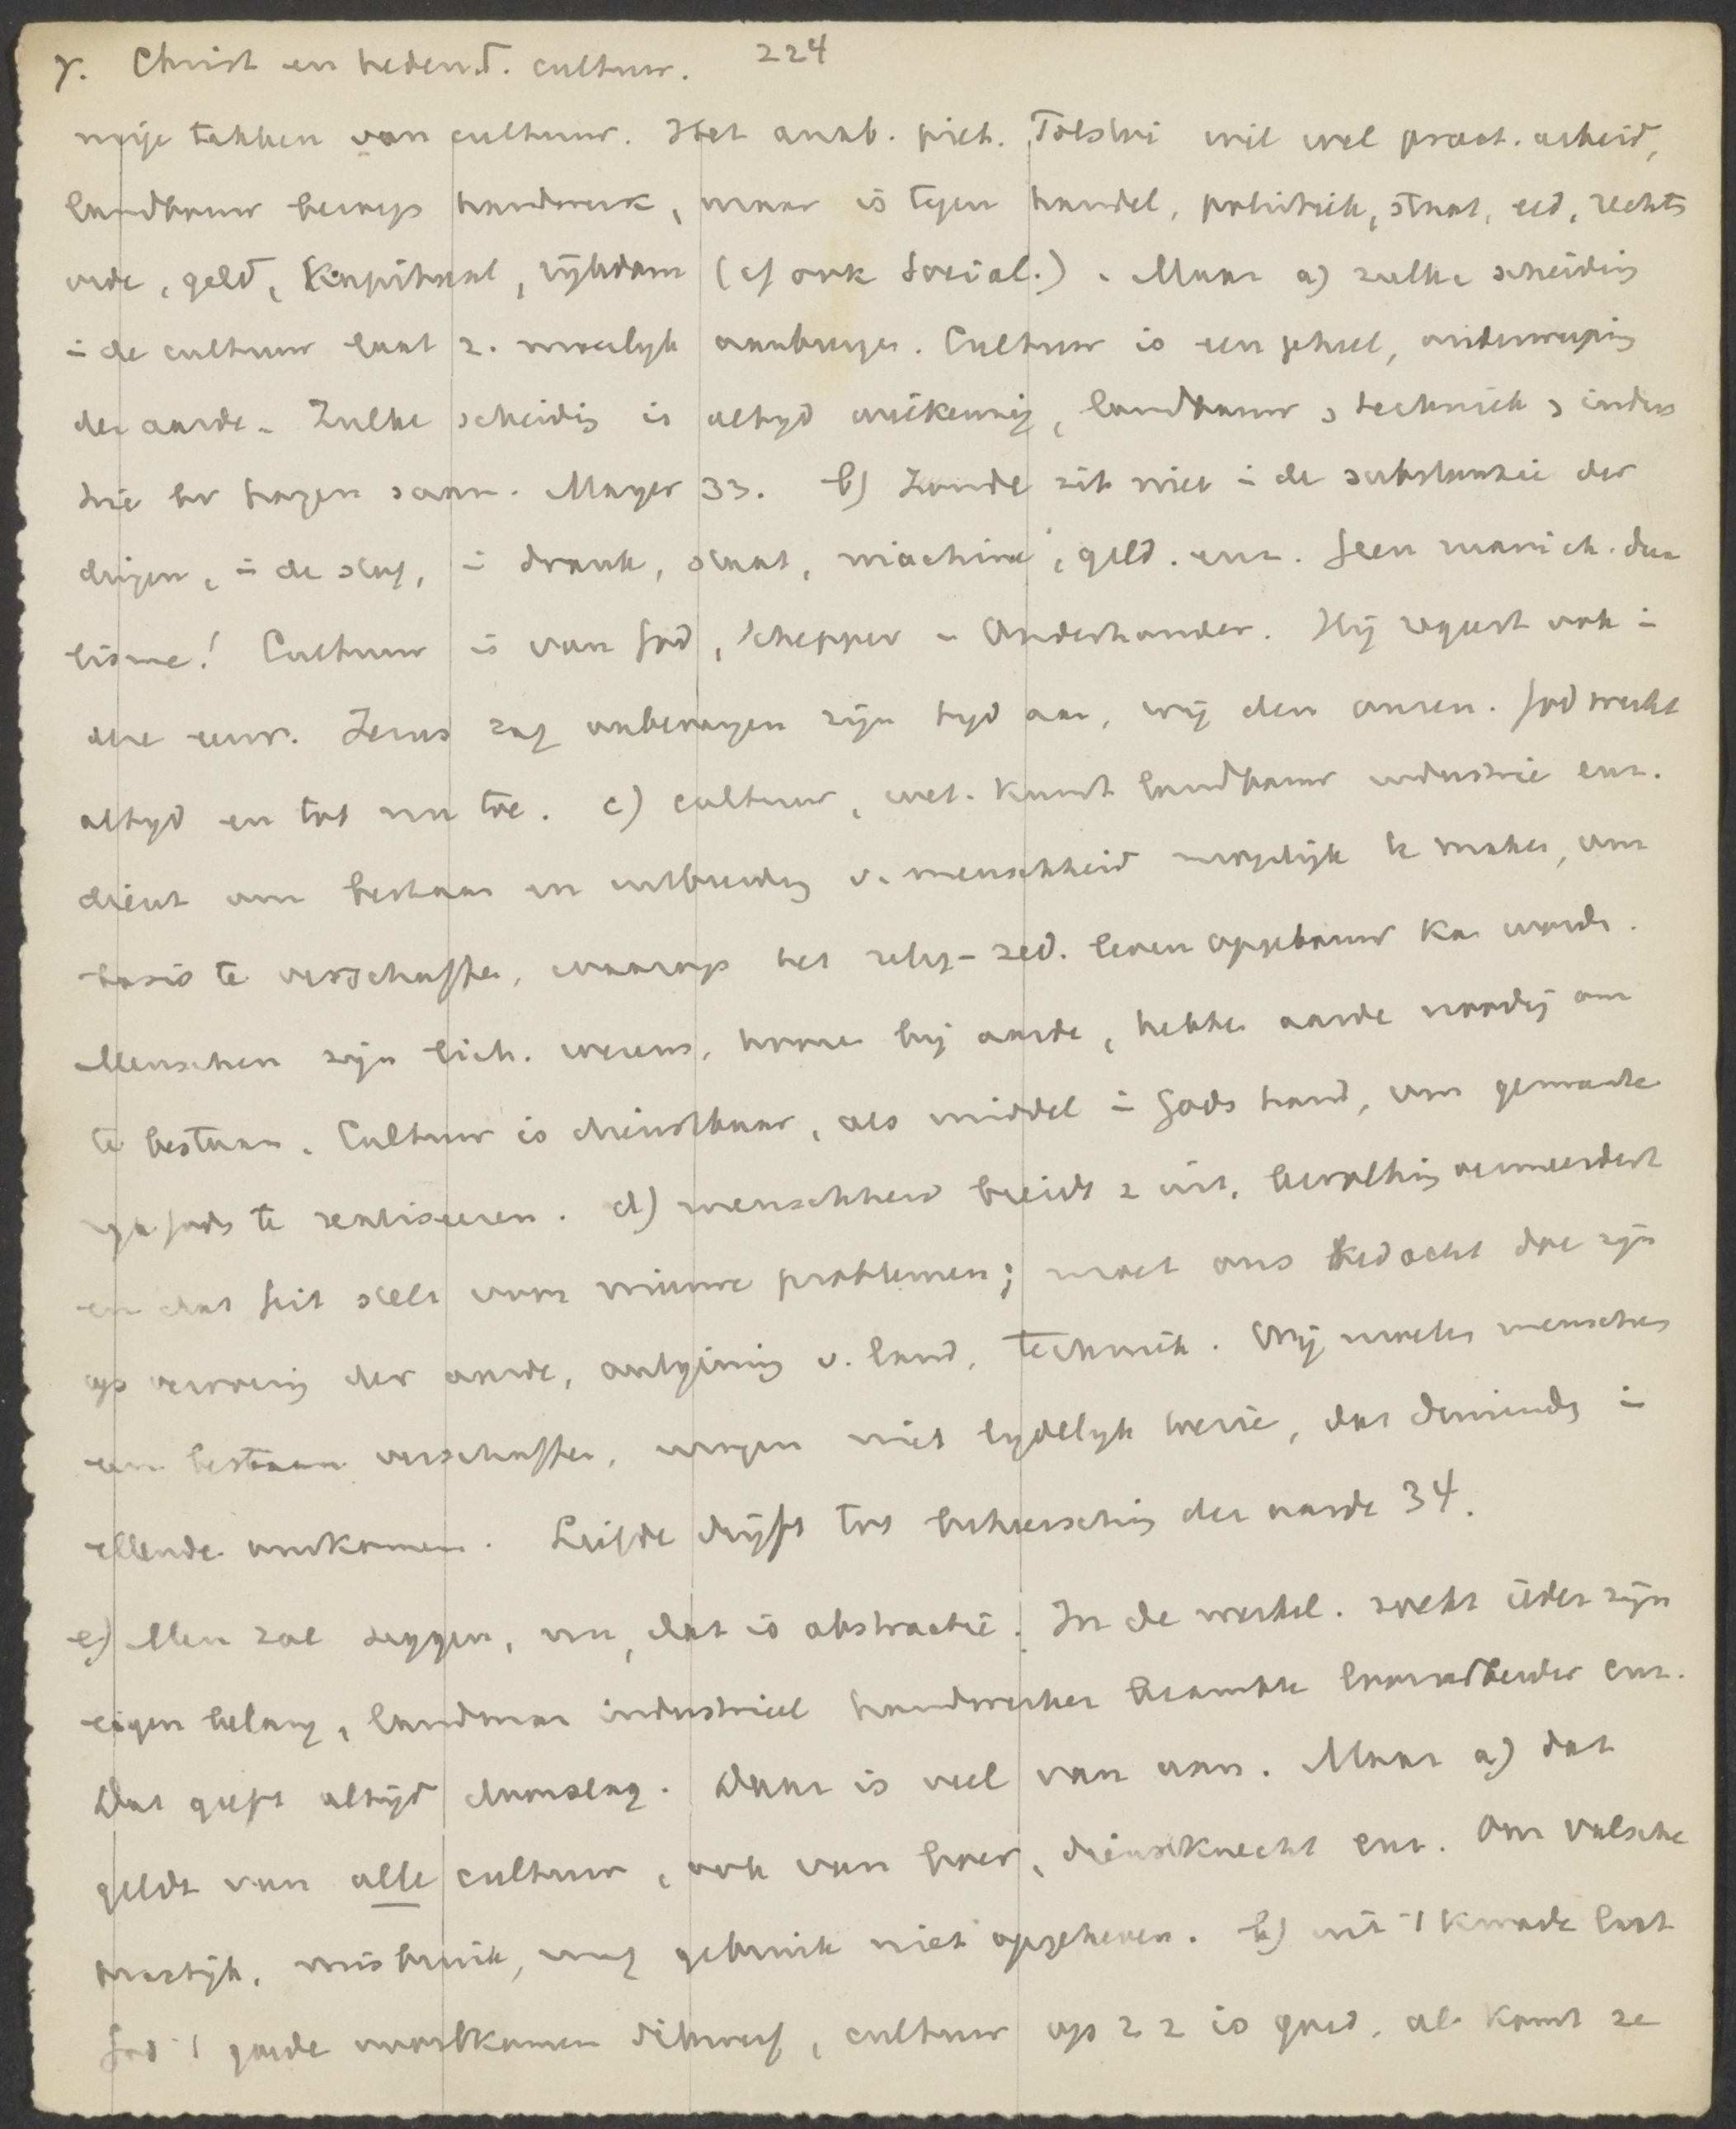 γ. Christ en hedend. cultuur. 224
vrije takken van cultuur. Het anab. piet. Tolstoi wil wel pract. arbeid,
landbouw beroep handwerk, maar is tegen handel, politiek, staat, eed, rechts
orde, geld, Kapitaal, rijkdom (cf ook social.). Maar a) zulke scheiding
in de cultuur laat z. moeilijk aanbrengen. Cultuur is een geheel, onderwerping
der aarde. Zulke scheiding is altijd willekeurig, landbouw, techniek, indus
trie enz hangen saam. Mayer 33. b) Zonde zit niet in de substantie der
dingen, in de stof, in drank, staat, machine, geld. enz. Geen manich. dua
lisme! Cultuur is van God, Schepper en Onderhouder. Hij regeert ook in
deze eeuw. Jezus zag onbevangen zijn tijd aan, wij den onzen. God werkt
altijd en tot nu toe. c) cultuur, wet. kunst landbouw industrie enz.
dient om bestaan en uitbreiding v. menschheid mogelijk te maken, om
basis te verschaffen, waarop het relig-zed. leven opgebouwd kan worden.
Menschen zijn lich. wezens, hooren bij aarde, hebben aarde noodig om
te bestaan. Cultuur is dienstbaar, als middel in Gods hand, om gemeente
rijk Gods te realiseeren. d) menschheid breidt z uit, bevolking vermeerdert
en dat feit stelt voor nieuwe problemen; moet ons bedacht doen zijn
op verovering der aarde, ontginning v. land, techniek. Wij moeten menschen
een bestaan verschaffen, mogen niet lijdelijk toezien, dat duizenden in
ellende omkomen. Liefde drijft tot beheersching der aarde 34.
e) Men zal zeggen, nu, dat is abstractie. In de werkel. zoekt ieder zijn
eigen belang, landman industrieel handwerker beambte loonarbeider enz.
Dat geeft altijd doorslag. Daar is veel van aan. Maar a) dat
geldt van alle cultuur, ook van boer, dienstknecht enz. Om valsche
practijk, misbruik, mag gebruik niet opgeheven. b) uit 't kwade laat
God 't goede voortkomen dikwerf, cultuur op z z is goed, al komt ze